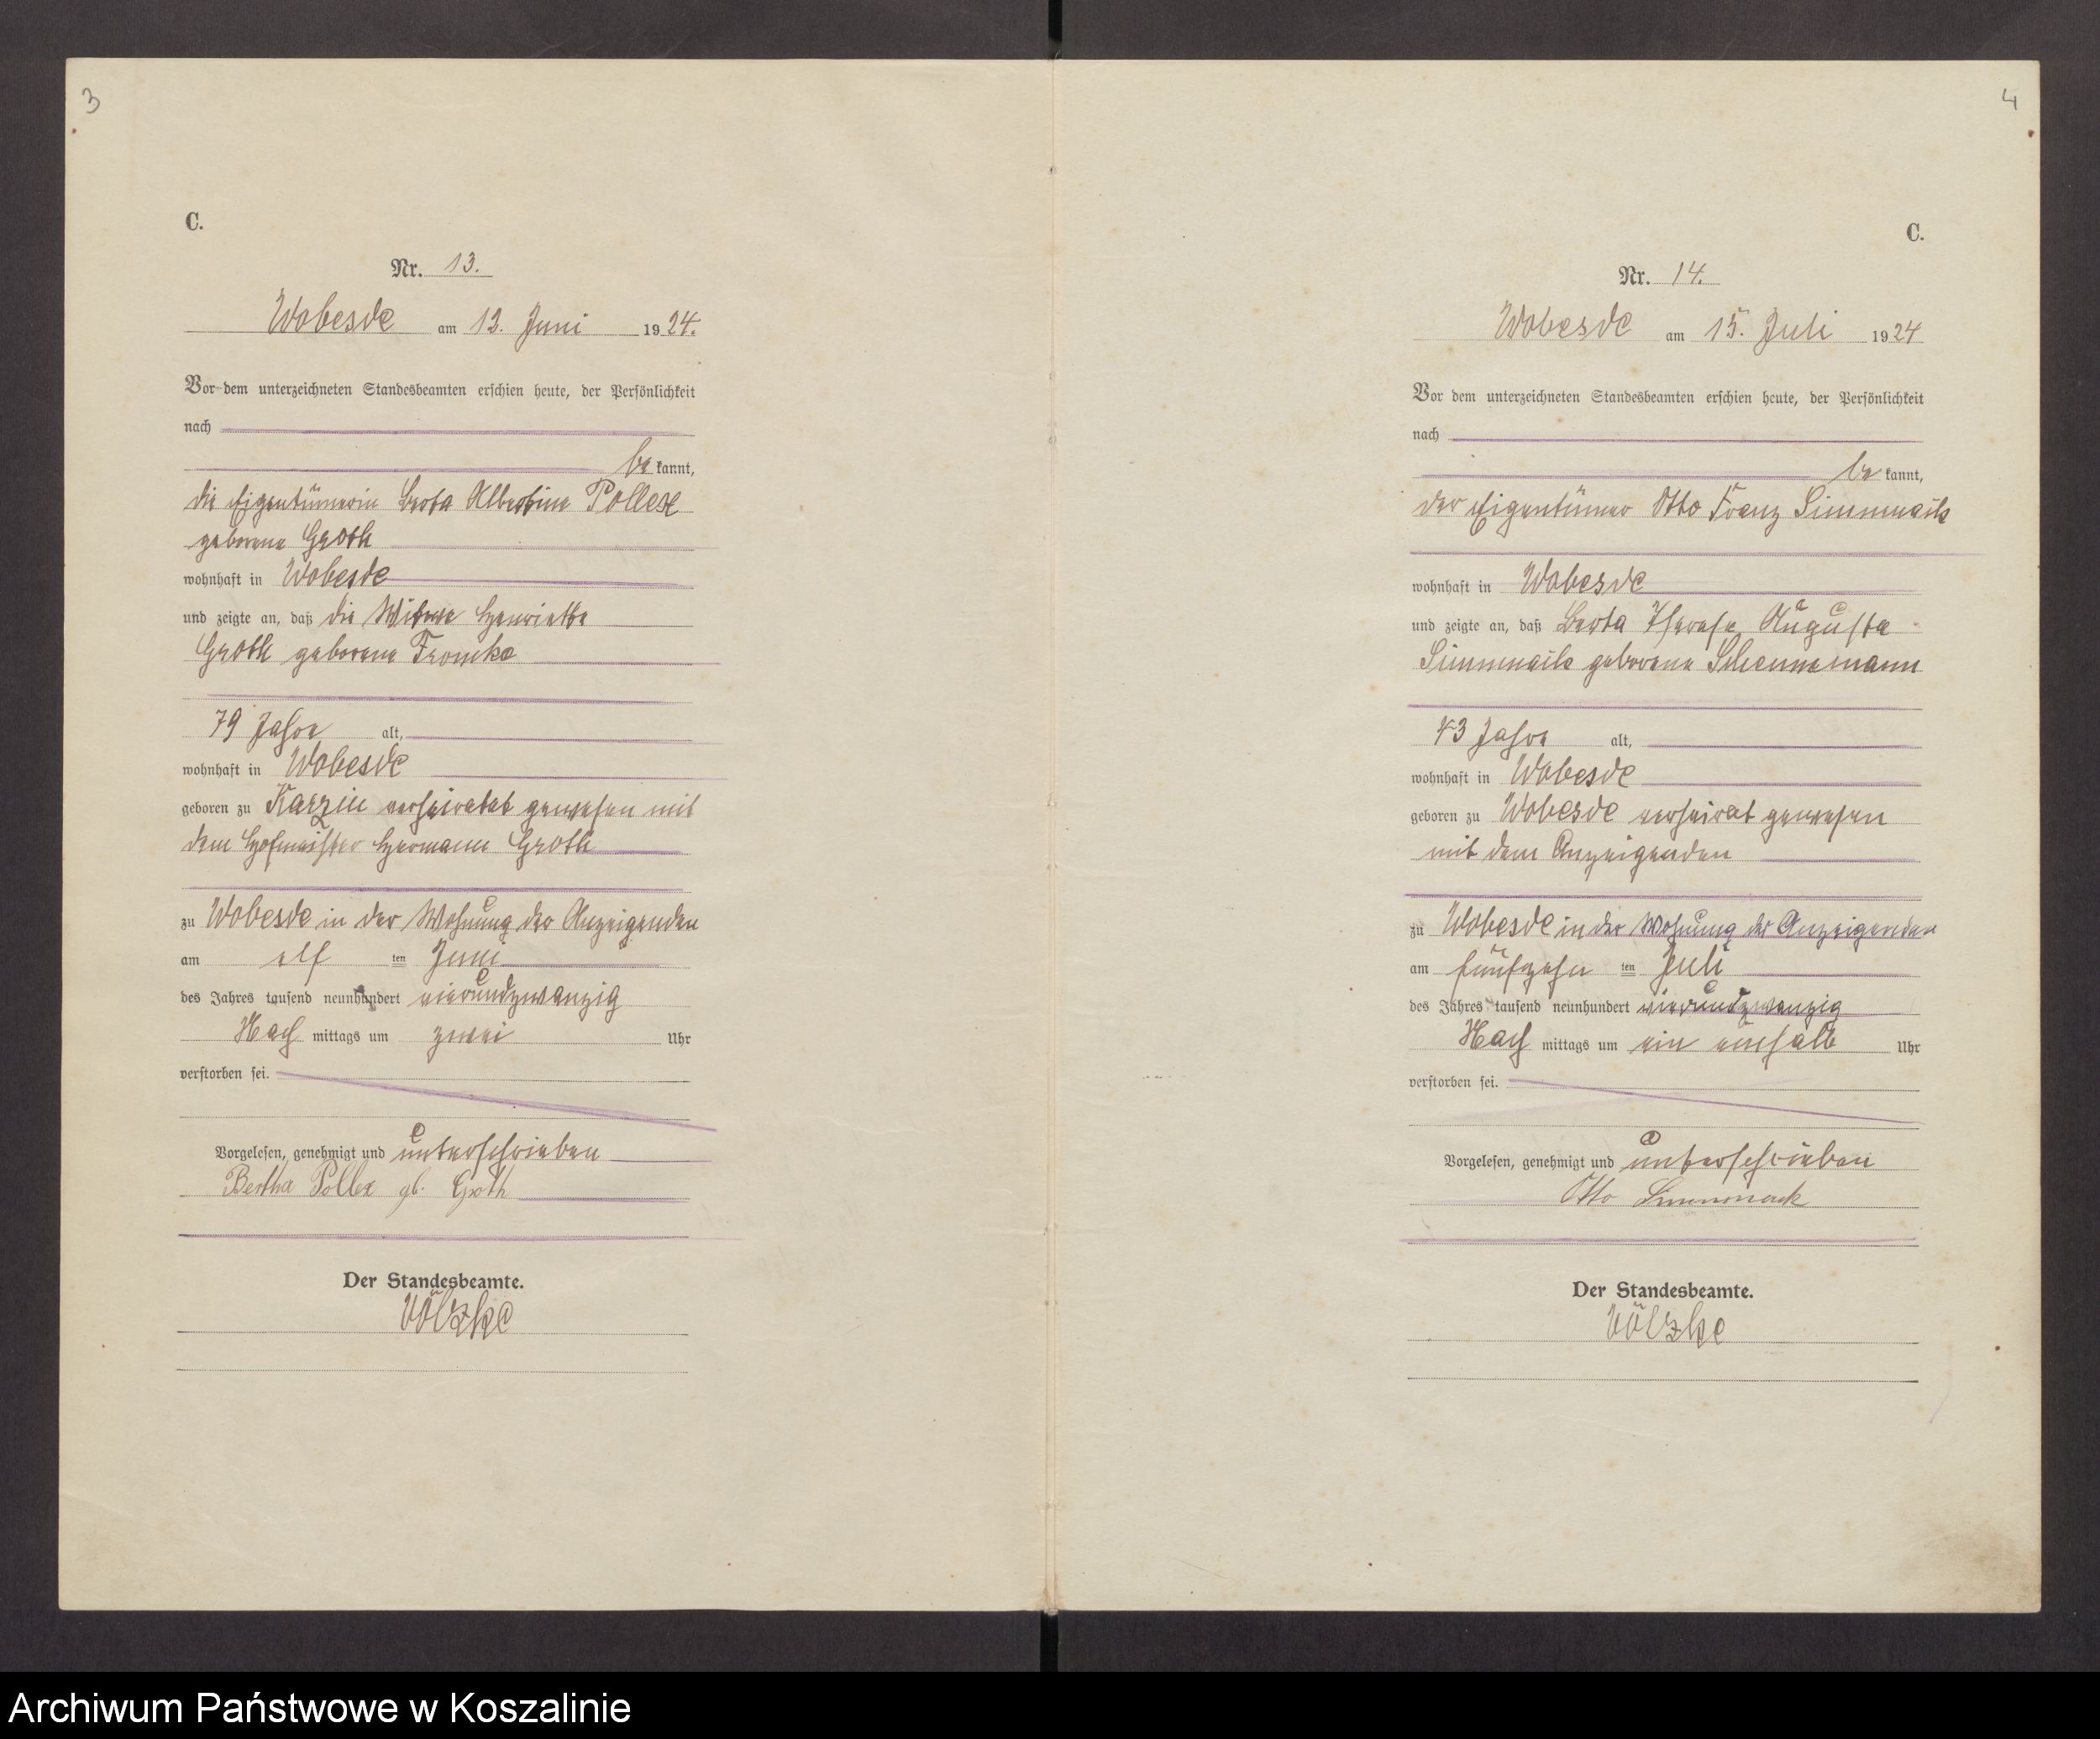 3
C.
Nr. 13.
Wobesde am 12. Juni 1924.
Vor dem unterzeichneten Standesbeamten erschien heute, der Persönlichkeit
nach
be kannt,
die Eigentümerin Berta Albertine Pollex
geborene Groth
wohnhaft in Wobesde
und zeigte an, daß die Witwe Henriette
Groth geborene
79 Jahre alt,
wohnhaft in Wobesde
geboren zu Karzin verheiratet gewesen mit
dem Hofmeister Hermann Groth
zu Wobesde in der Wohnung der Anzeigenden
am elf ten Juni
des Jahres tausend neunhundert vierundzwanzig
Nach mittags um zwei Uhr
verstorben sei.
Vorgelesen, genehmigt und unterschrieben
Bertha Pollex gb. Groth
Der Standesbeamte.
Völzke
4
C.
Nr. 14.
Wobesde am 15. Juli 1924
Vor dem unterzeichneten Standesbeamten erschien heute, der Persönlichkeit
nach
be kannt,
der Eigentümer Otto Franz
wohnhaft in Wobesde
und zeigte an, daß Berta Therese Auguste
geborene
43 Jahre alt,
wohnhaft in Wobesde
geboren zu Wobesde verheirat gewesen
mit dem Anzeigenden
zu Wobesde in der Wohnung des Anzeigenden
am fünfzehn ten Juli
des Jahres tausend neunhundert vierundzwanzig
Nach mittags um ein einhalb Uhr
verstorben sei.
Vorgelesen, genehmigt und unterschrieben
Otto
Der Standesbeamte.
Völzke
Archiwum Państwowe w Koszalinie